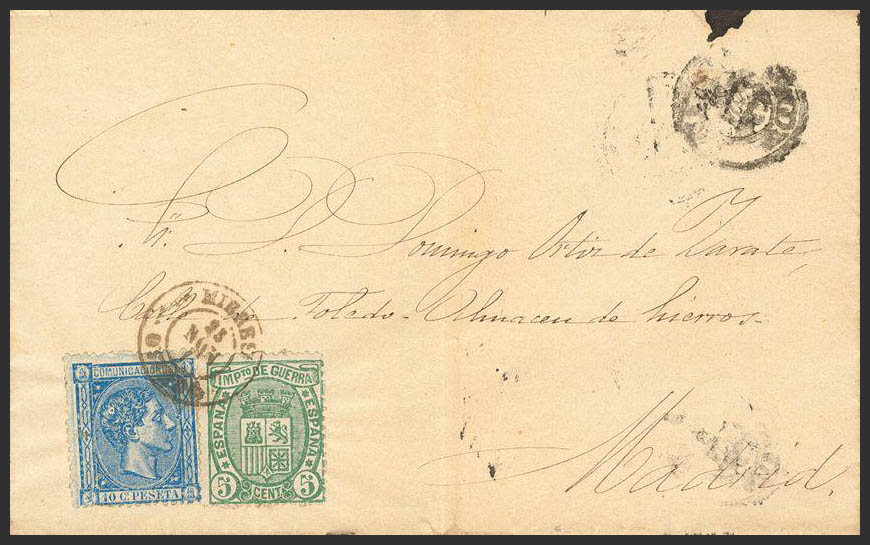 Sr. D. Domingo Ortiz de Zarate,
Calle de Toledo - Almacen de hierros -
Madrid.
MIERES
23
NOV
COMUNICACIONES
10 C. PESETA
IMPTO DE GUERRA
ESPAÑA
ESPAÑA
5 CENT. 5